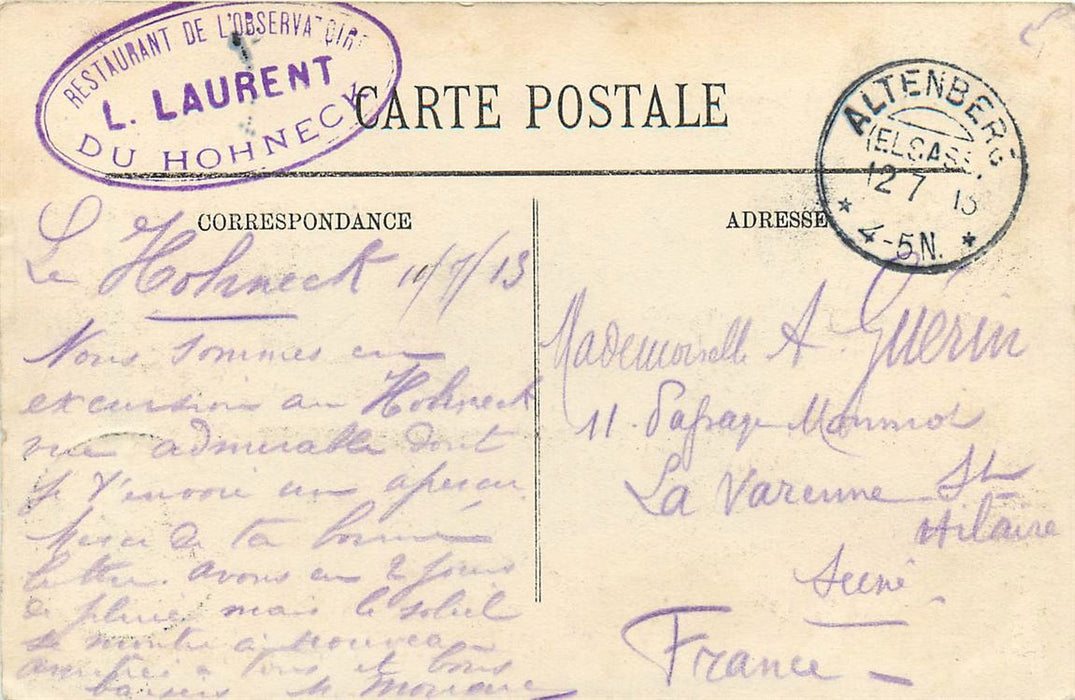 RESTAURANT DE L'OBSERVATOIRE
L. LAURENT
DU HOHNECK
CARTE POSTALE
ALTENBERG
(ELSASS)
12 7 13
4-5N.
CORRESPONDANCE
ADRESSE
Le Hohneck 10/7/13
Nous sommes en
excursion au Hohneck
vue admirable dont
je t'envoie un aperçu.
Merci de ta bonne
lettre. avons eu 2 jours
de pluie mais le soleil
se montre à nouveau
amitiés à tous et bons
baisers M
Mademoiselle A. Guérin
11. Passage
La Varenne St
Hilaire
Seine
France